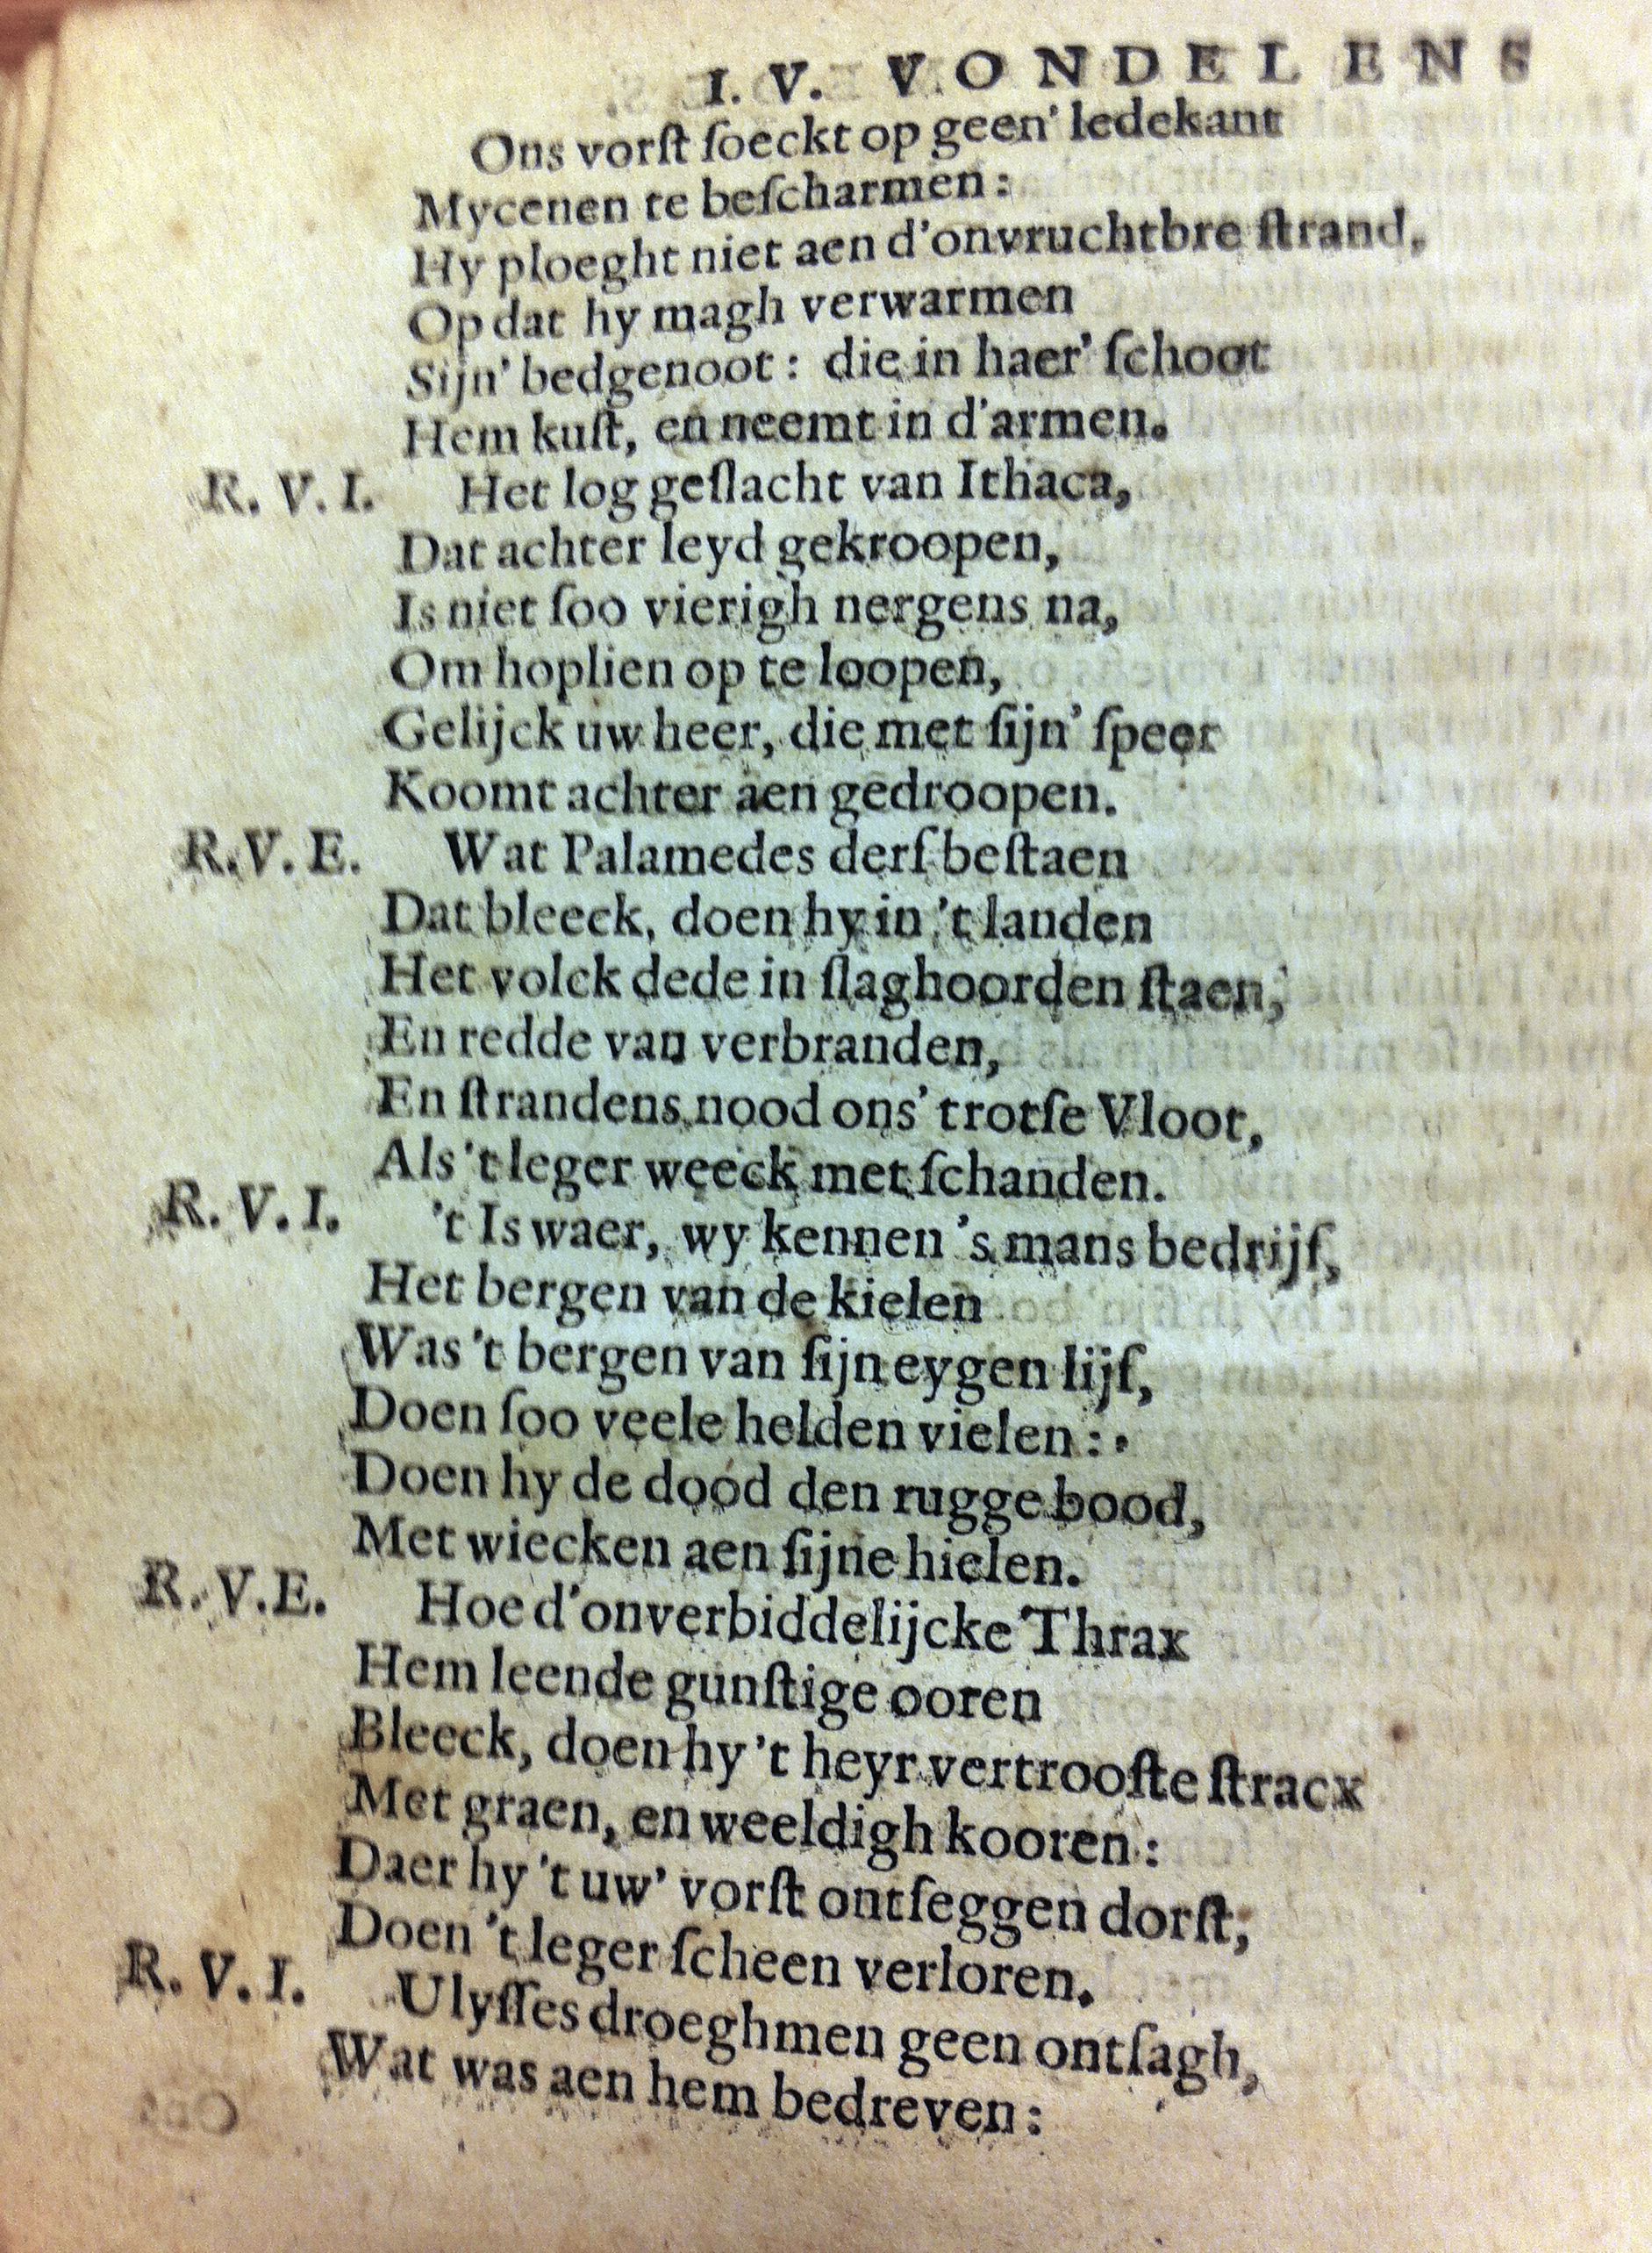 I. V. VONDELENS
Ons vorſt ſoeckt op geen' ledekant
Mycenen te beſcharmen:
Hy ploeght niet aen d'onvruchtbre ſtrand,
Op dat hy magh verwarmen
Sijn' bedgenoot: die in haer' ſchoot
Hem kuſt, en neemt in d'armen.
R. V. I. Het log geſlacht van Ithaca,
Dat achter leyd gekroopen,
Is niet ſoo vierigh nergens na,
Om hoplien op te loopen,
Gelijck uw heer, die met ſijn' ſpeer
Koomt achter aen gedroopen.
R. V. E. Wat Palamedes derf beſtaen
Dat bleeck, doen hy in 't landen
Het volck dede in ſlaghoorden ſtaen,
En redde van verbranden,
En ſtrandens nood ons' trotſe Vloot,
Als 't leger weeck met ſchanden.
R. V. I. 't Is waer, wy kennen 's mans bedrijf,
Het bergen van de kielen
Was 't bergen van ſijn eygen lijf,
Doen ſoo veele helden vielen:
Doen hy de dood den rugge bood,
Met wiecken aen ſijne hielen.
R. V. E. Hoe d'onverbiddelijcke Thrax
Hem leende gunſtige ooren
Bleeck, doen hy 't heyr vertrooſte ſtracx
Met graen, en weeldigh kooren:
Daer hy 't uw' vorſt ontſeggen dorſt,
Doen 't leger ſcheen verloren.
R. V. I. Ulyſſes droegh men geen ontſagh,
Wat was aen hem bedreven: